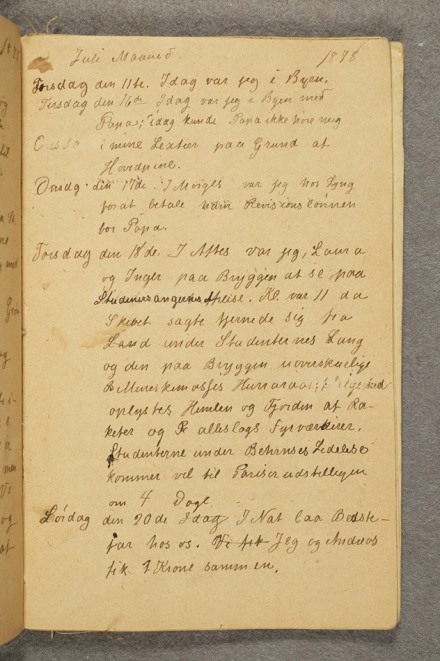 Juli Maaned. 1878
Torsdag den 11te. Idag var jeg i Byen.
Tirsdag den 16te Idag var jeg i Byen med
Papa; idag kunde Papa ikke høre mig
i mine Lexter paa Grund af
Hovedpine.
Onsdag den 17de. I Morges var jeg hos Lyng
for at betale
for Papa.
Torsdag den 18de. I Aftes var jeg, Laura
og Inger paa Bryggen at se paa
Studenter Afreise. Kl. var 11 da
Skibet sagte fjernede sig fra
Land under Studenternes Sang
og den paa Bryggen uoverskuelige
Menneskemasses Hurraraab;
oplystes Himlen og Fjorden af Ra-
keter og alleslags Fyrværkerier.
Studenterne under Behrnses Ledelse
kommer vel til Pariserudstillingen
om 4 Dage.
Lørdag den 20de Idag I Nat laa Bedste-
far hos os. Vi fik Jeg og Andreas
fik 1 Krone sammen.